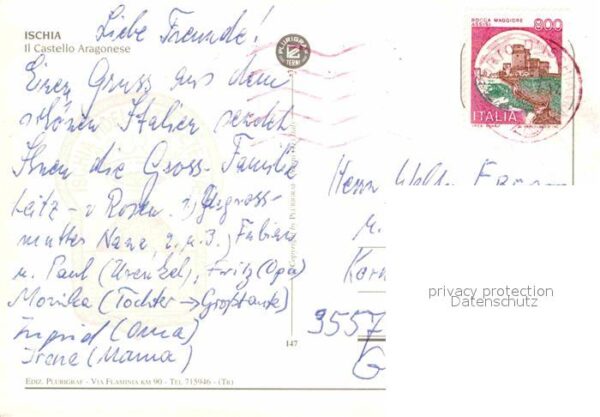 ISCHIA
Il Castello Aragonese
Liebe Freunde!
Einen Gruss aus dem
schönen Italien sendet
Ihnen die Gross-Familie
Leitz- v Rosen. 1) Urgross-
mutter Nana, 2. u. 3.) Fabian
u. Paul (Urenkel), Fritz (Opa)
Monika (Tochter → Großtante)
Ingrid (Oma)
Irena (Mama)
EDIZ. PLURIGRAF - VIA FLAMINIA KM 90 - TEL 715946 - (TR)
PLURIGRAF
TERNI
Copyright by PLURIGRAF
147
ROCCA MAGGIORE
800
ITALIA
Herrn
3557
privacy protection
Datenschutz